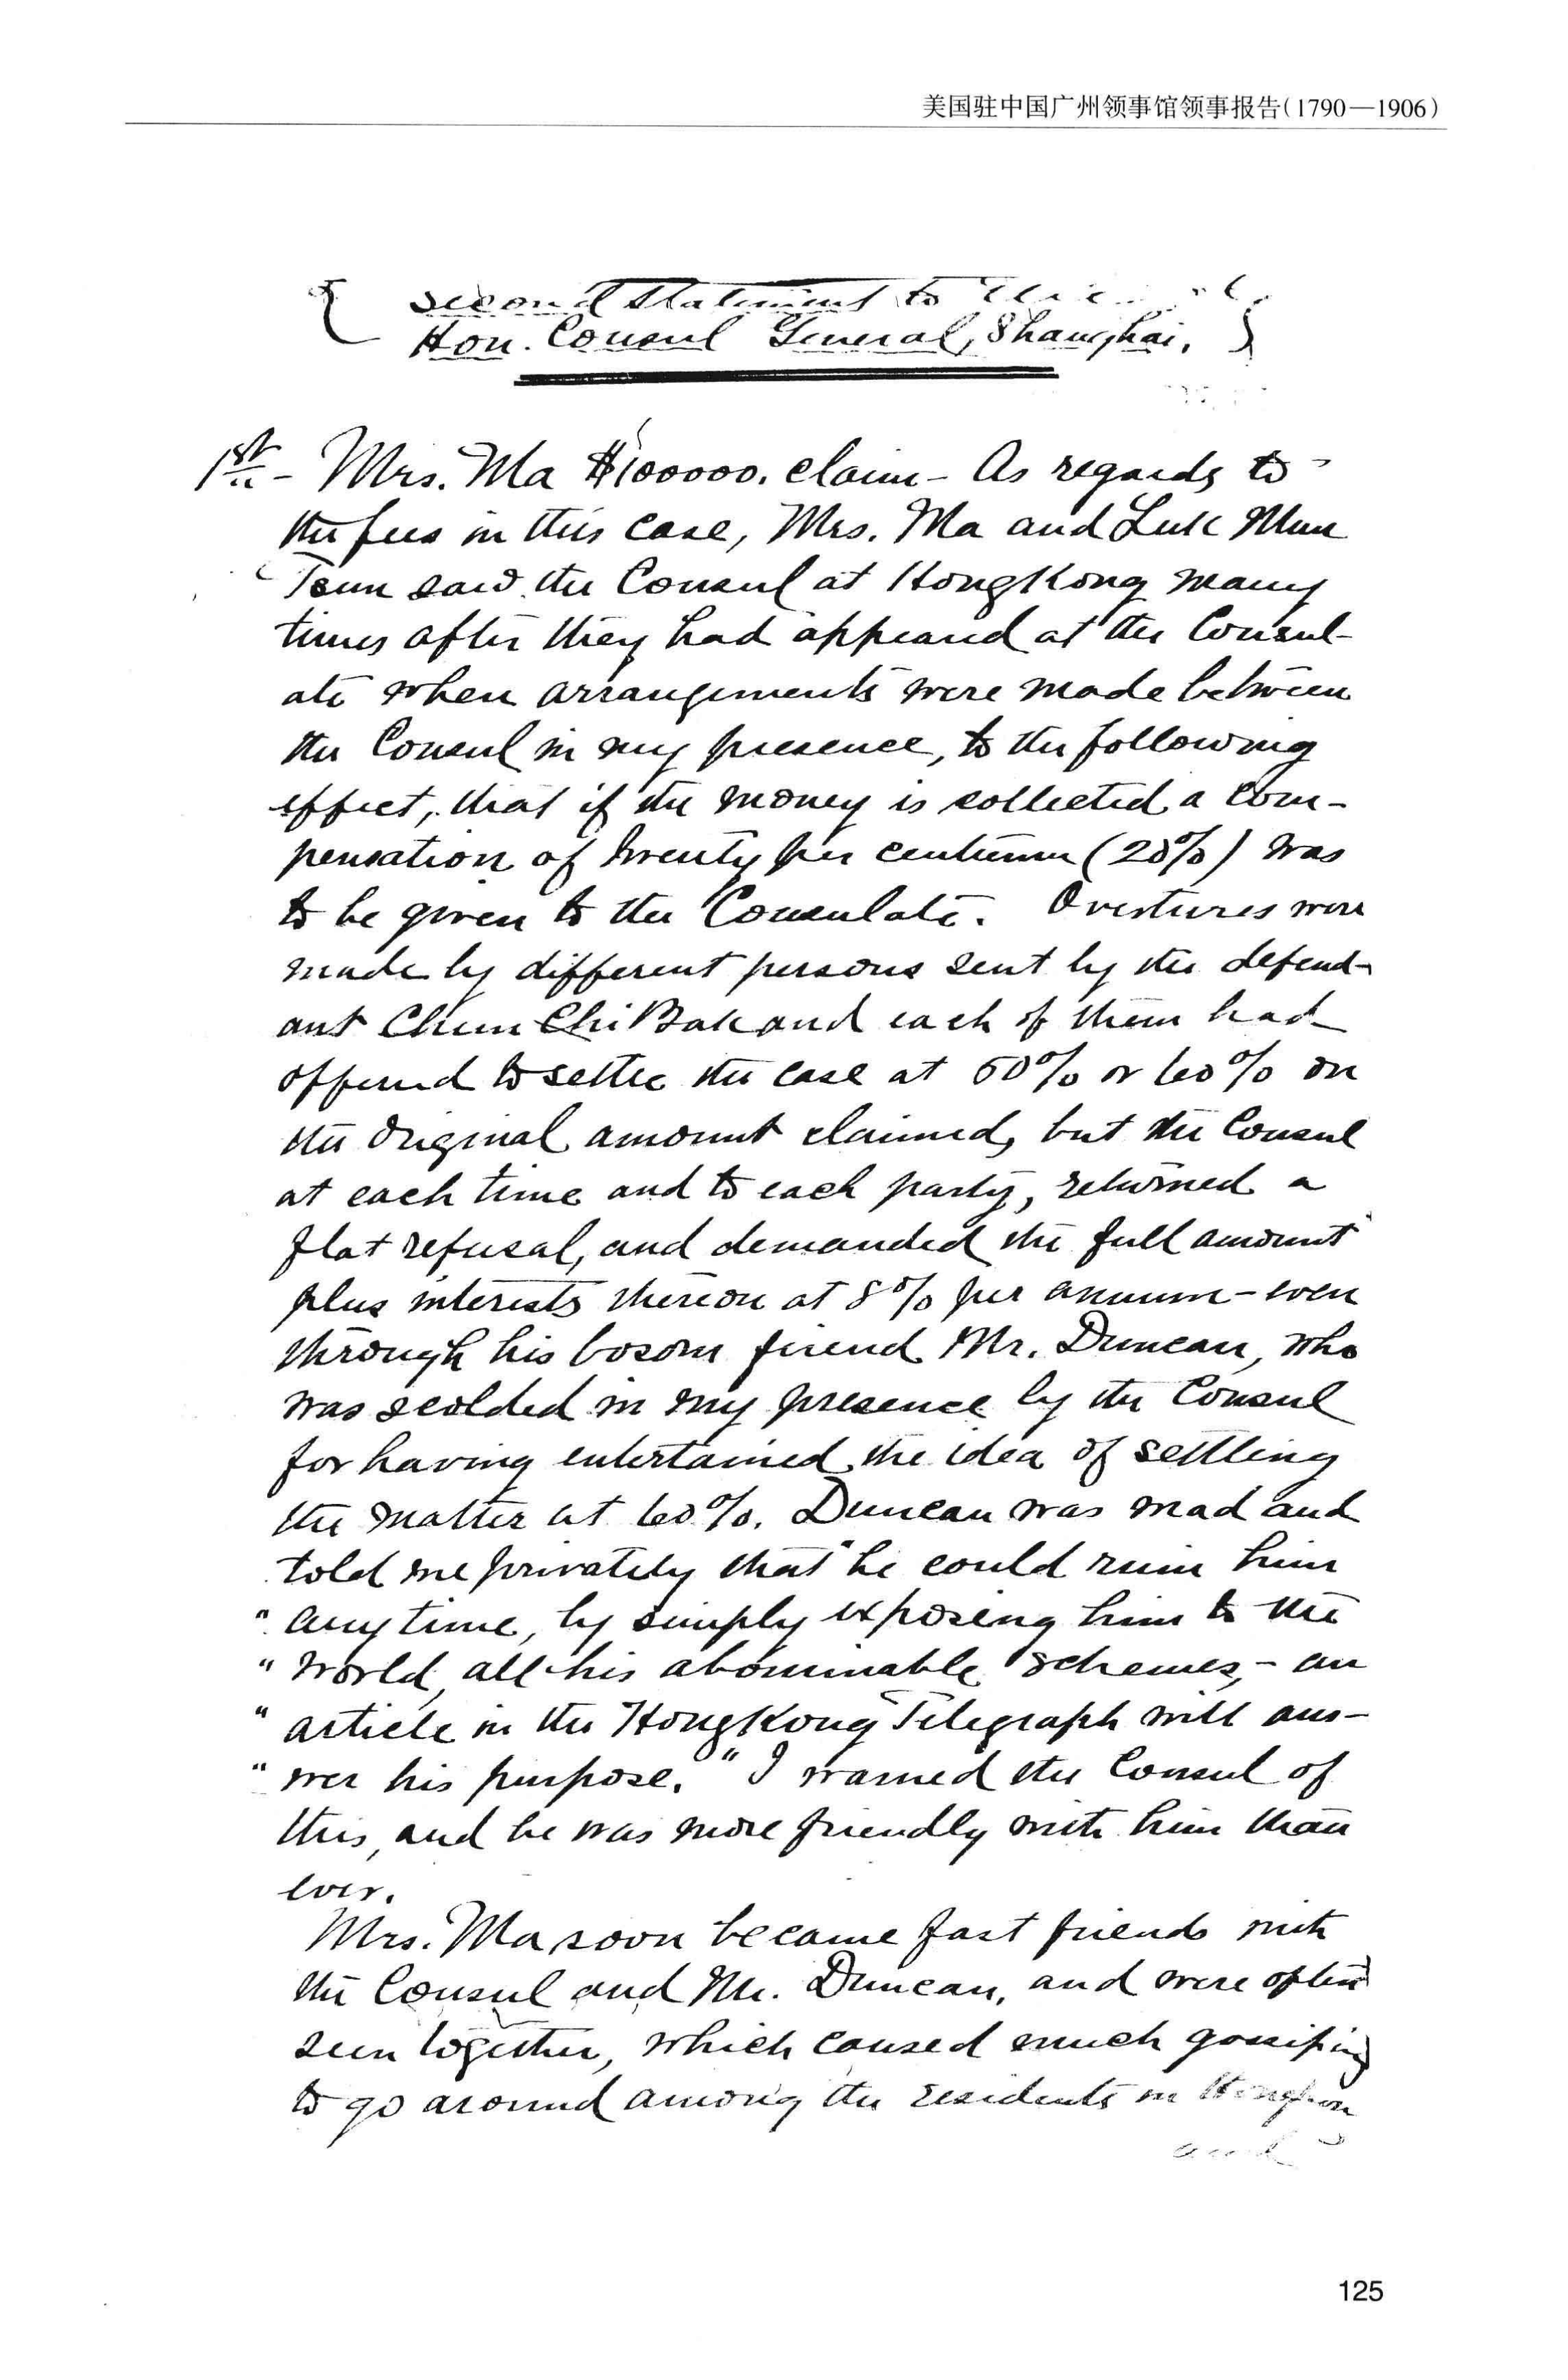 美国驻中国广州领事馆领事报告(1790—1906)
Second Statement to
Hon. Consul General, Shanghai,
1st - Mrs. Ma $100000. claim - As regards to
the fees in this case, Mrs. Ma and Luk Mun
Tsun saw the Consul at HongKong many
times after they had appeared at the Consul-
ate when arrangements were made between
the Consul in my presence, to the following
effect, that if the money is collected a com-
pensation of twenty per centum (20%) was
to be given to the Consulate. Overtures were
made by different persons sent by the defend-
ant Chun Chi Bak and each of them had
offered to settle the case at 50% or 60% on
the original amount claimed, but the Consul
at each time and to each party, returned a
flat refusal, and demanded the full amount
plus interests thereon at 8% per annum - even
through his bosom friend Mr. Duncan, who
was scolded in my presence by the Consul
for having entertained the idea of settling
the matter at 60%. Duncan was mad and
told me privately that "he could ruin him
" any time, by simply exposing him to the
" world, all his abominable schemes, - an
" article in the HongKong Telegraph will ans-
" wer his purpose." I warned the Consul of
this, and he was more friendly with him than
ever.
Mrs. Ma soon became fast friends with
the Consul and Mr. Duncan, and were often
seen together, which caused much gossiping
to go around among the residents in
and
125